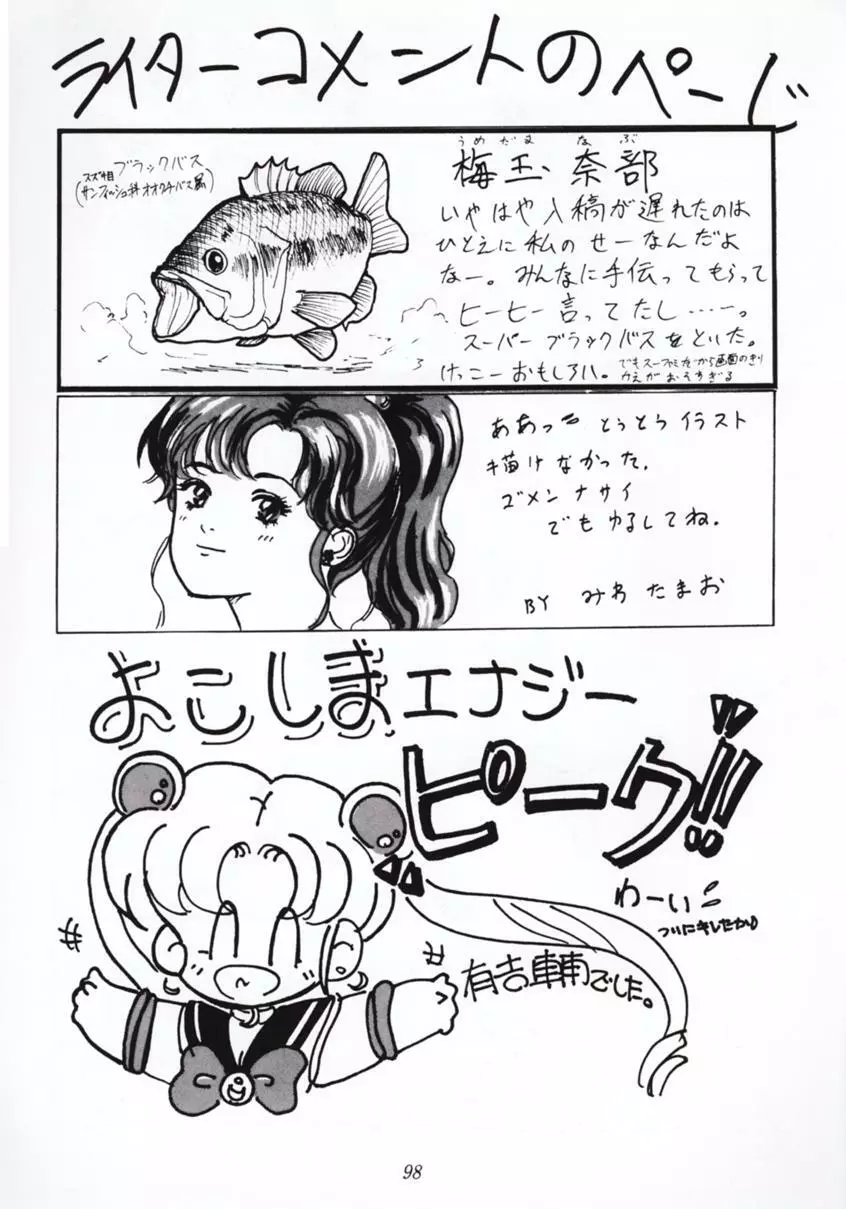 ライターコメントのページ
スズキ目 ブラックバス
(サンフィッシュ科オオクチバス属)
うめだま なぶ
梅玉 奈部
いやはや入稿が遅れたのは
ひとえに私のせーなんだよ
なー。みんなに手伝ってもらって
ヒーヒー言ってたし……。
スーパーブラックバスをといた。
けっこーおもしろい。
でもスーファミだから画面のきり
かえがおそすぎる
ああっ とうとうイラスト
描けなかった。
ゴメンナサイ
でもゆるしてね。
BY みわ たまお
よこしまエナジー
ピーク!!
わーい
ついにキしたか
有吉 でした。
98